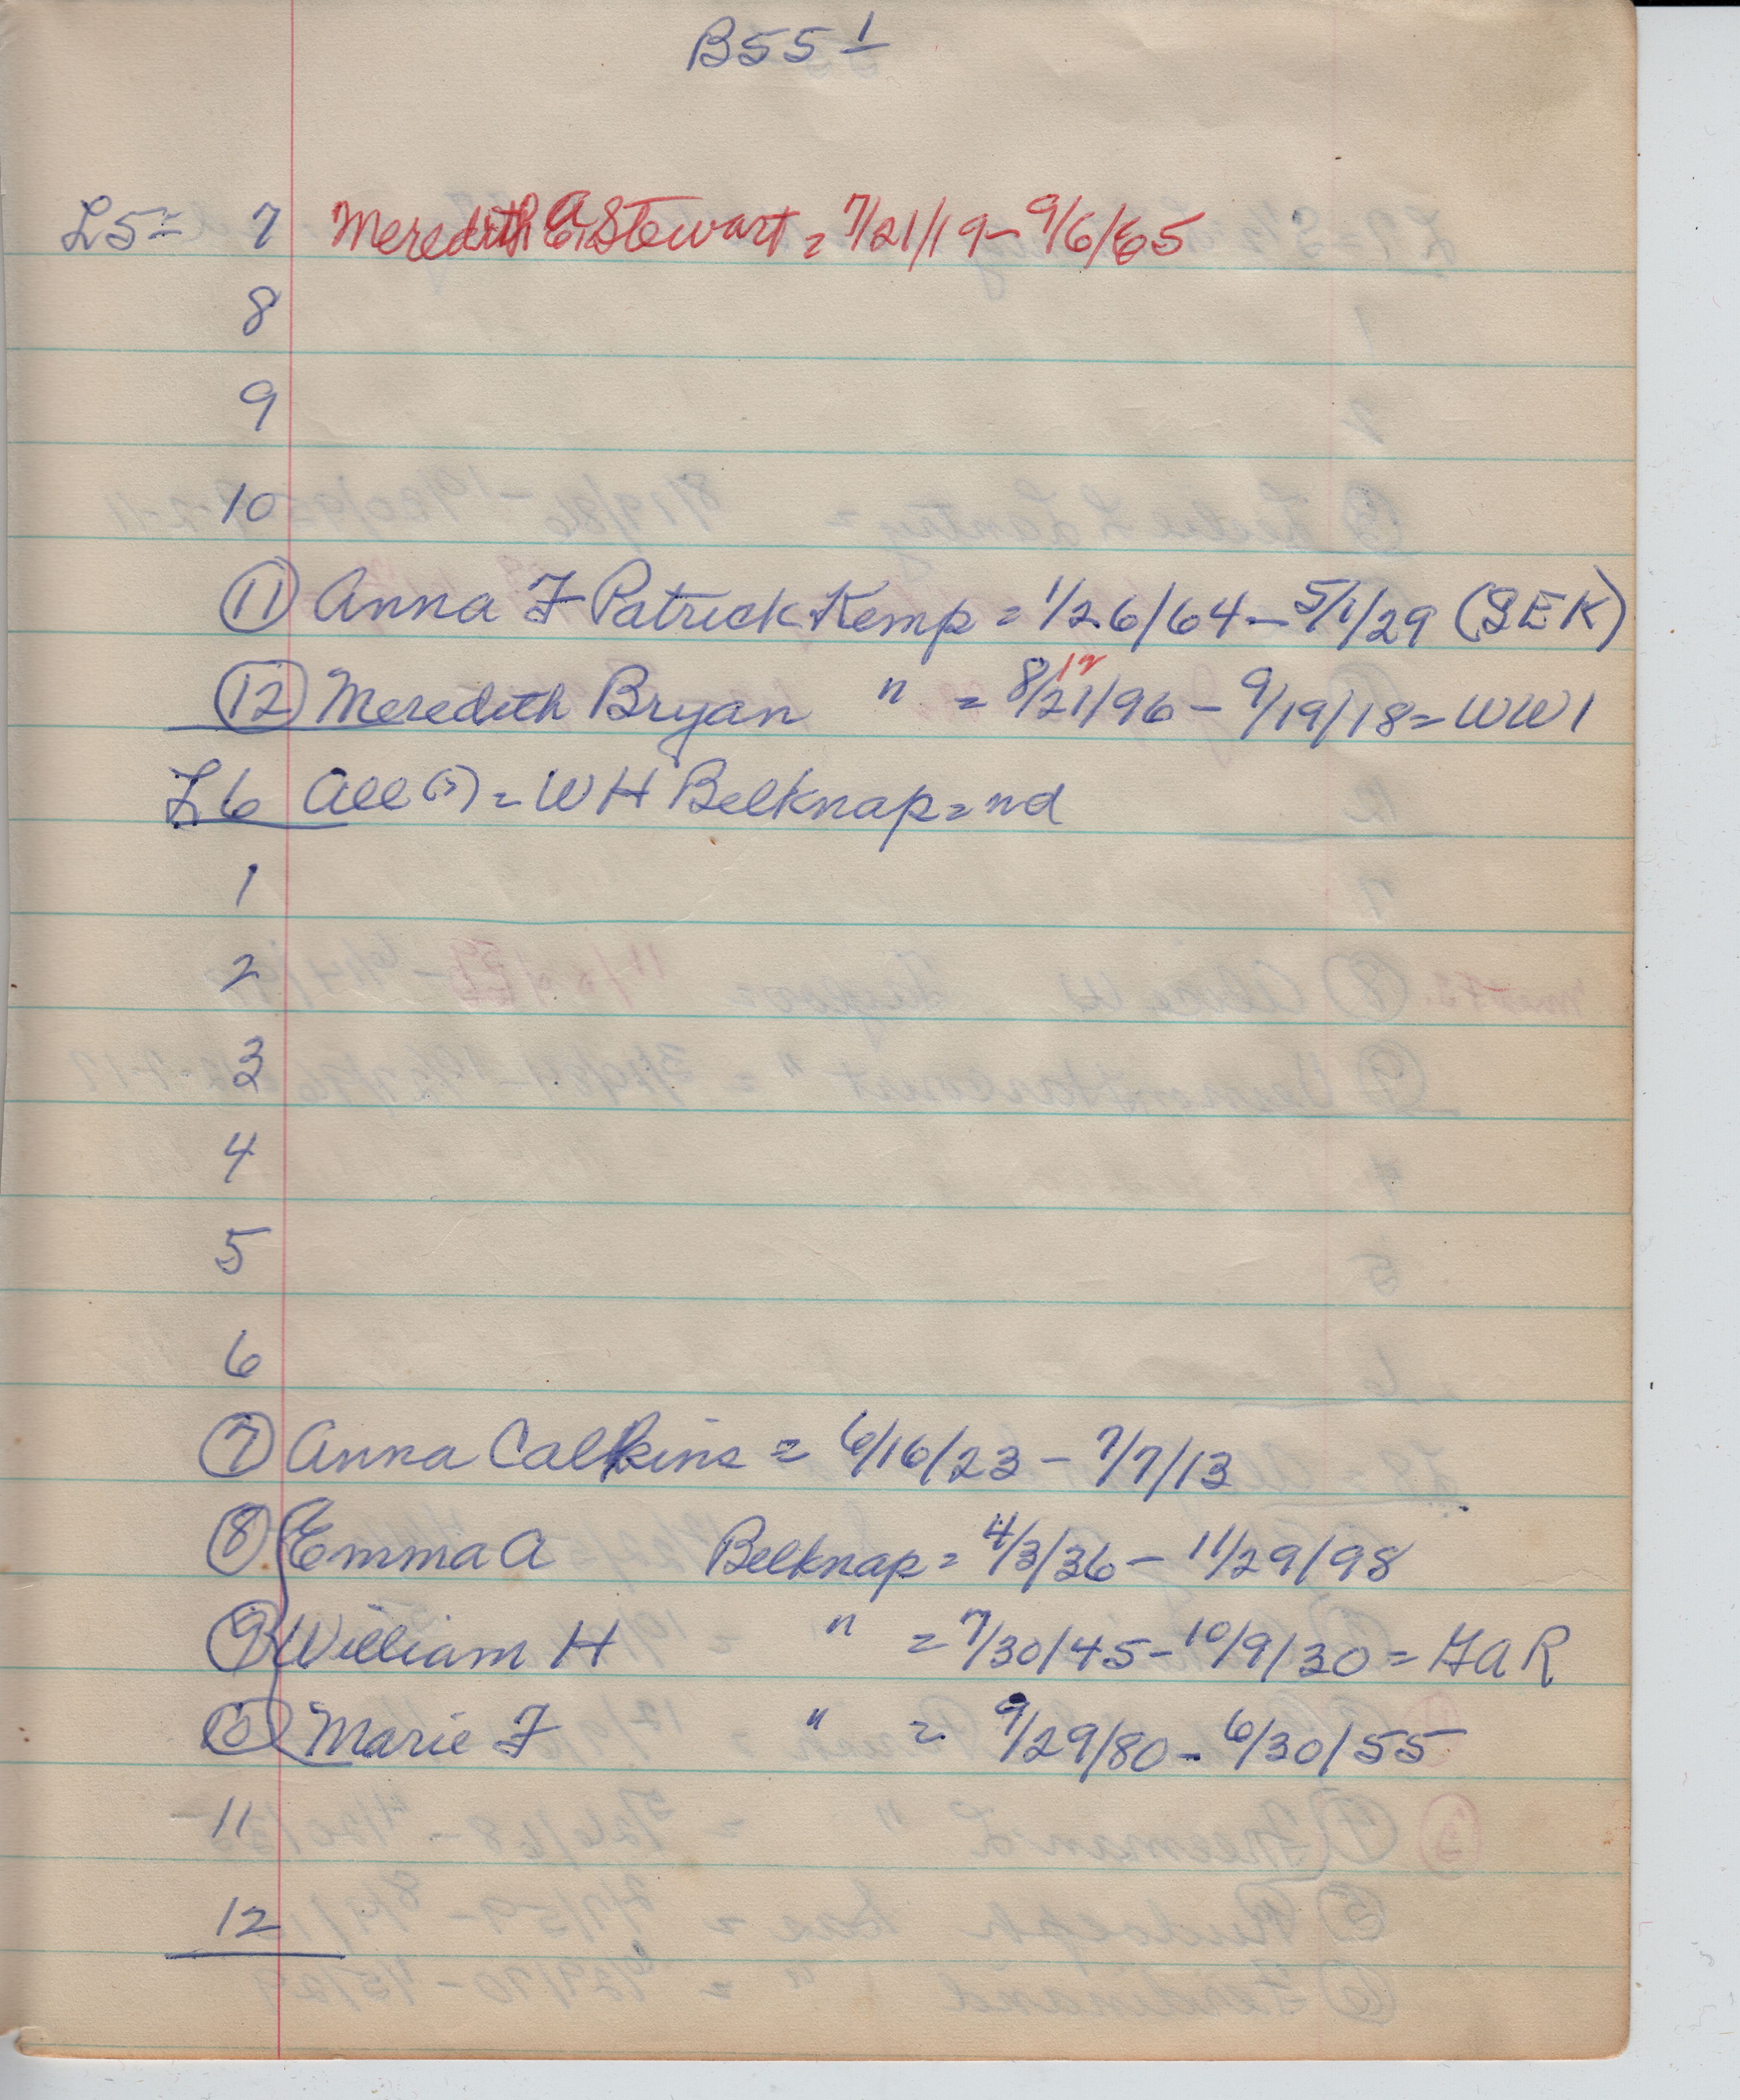 B55 1
L5= 7 Meredith A. Stewart = 7/21/19 - 9/6/65
8
9
10
11 Anna F Patrick Kemp = 1/26/64 - 5/1/29 (SEK)
12
12 Meredith Bryan " = 8/21/96 - 9/19/18 = WW1
L6 All (?) = WH Belknap = nd
1
2
3
4
5
6
7 Anna Calkins = 6/16/23 - 7/7/13
8 Emma A Belknap = 4/3/36 - 11/29/98
9 William H " = 7/30/45 - 10/9/30 = GAR
10 Marie F " = 9/29/80 - 6/30/55
11
12